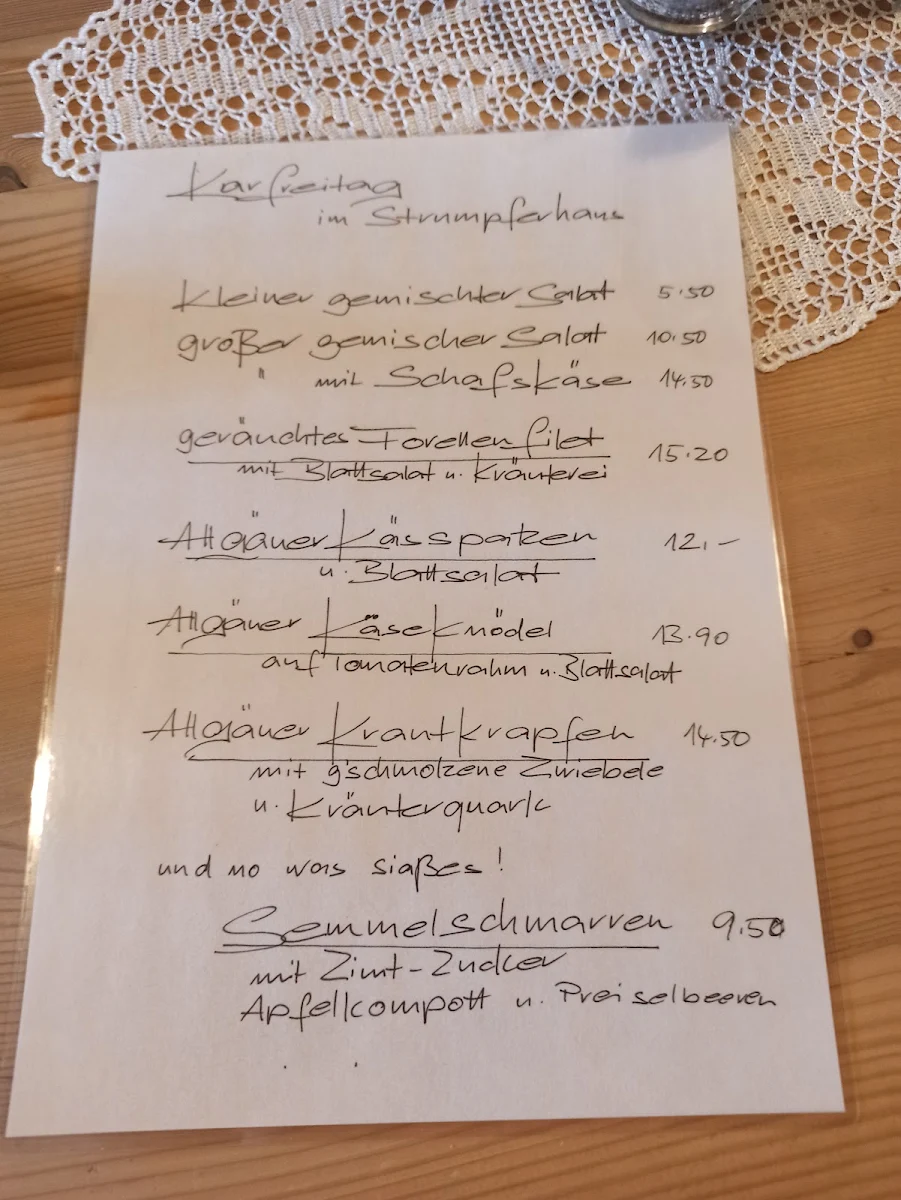 Karfreitag
im Strumpferhaus
Kleiner gemischter Salat 5.50
großer gemischer Salat 10.50
" mit Schafskäse 14.50
geräuchtes Forellenfilet 15.20
mit Blattsalat u. Kräuterei
Allgäuer Kässpatzen 12,-
u. Blattsalat
Allgäuer Käseknödel 13.90
auf Tomatenrahm u. Blattsalat
Allgäuer Krautkrapfen 14.50
mit g'schmolzene Zwiebele
u. Kräuterquark
und no was siaßes!
Semmelschmarren 9.50
mit Zimt-Zucker
Apfelkompott u. Preiselbeeren